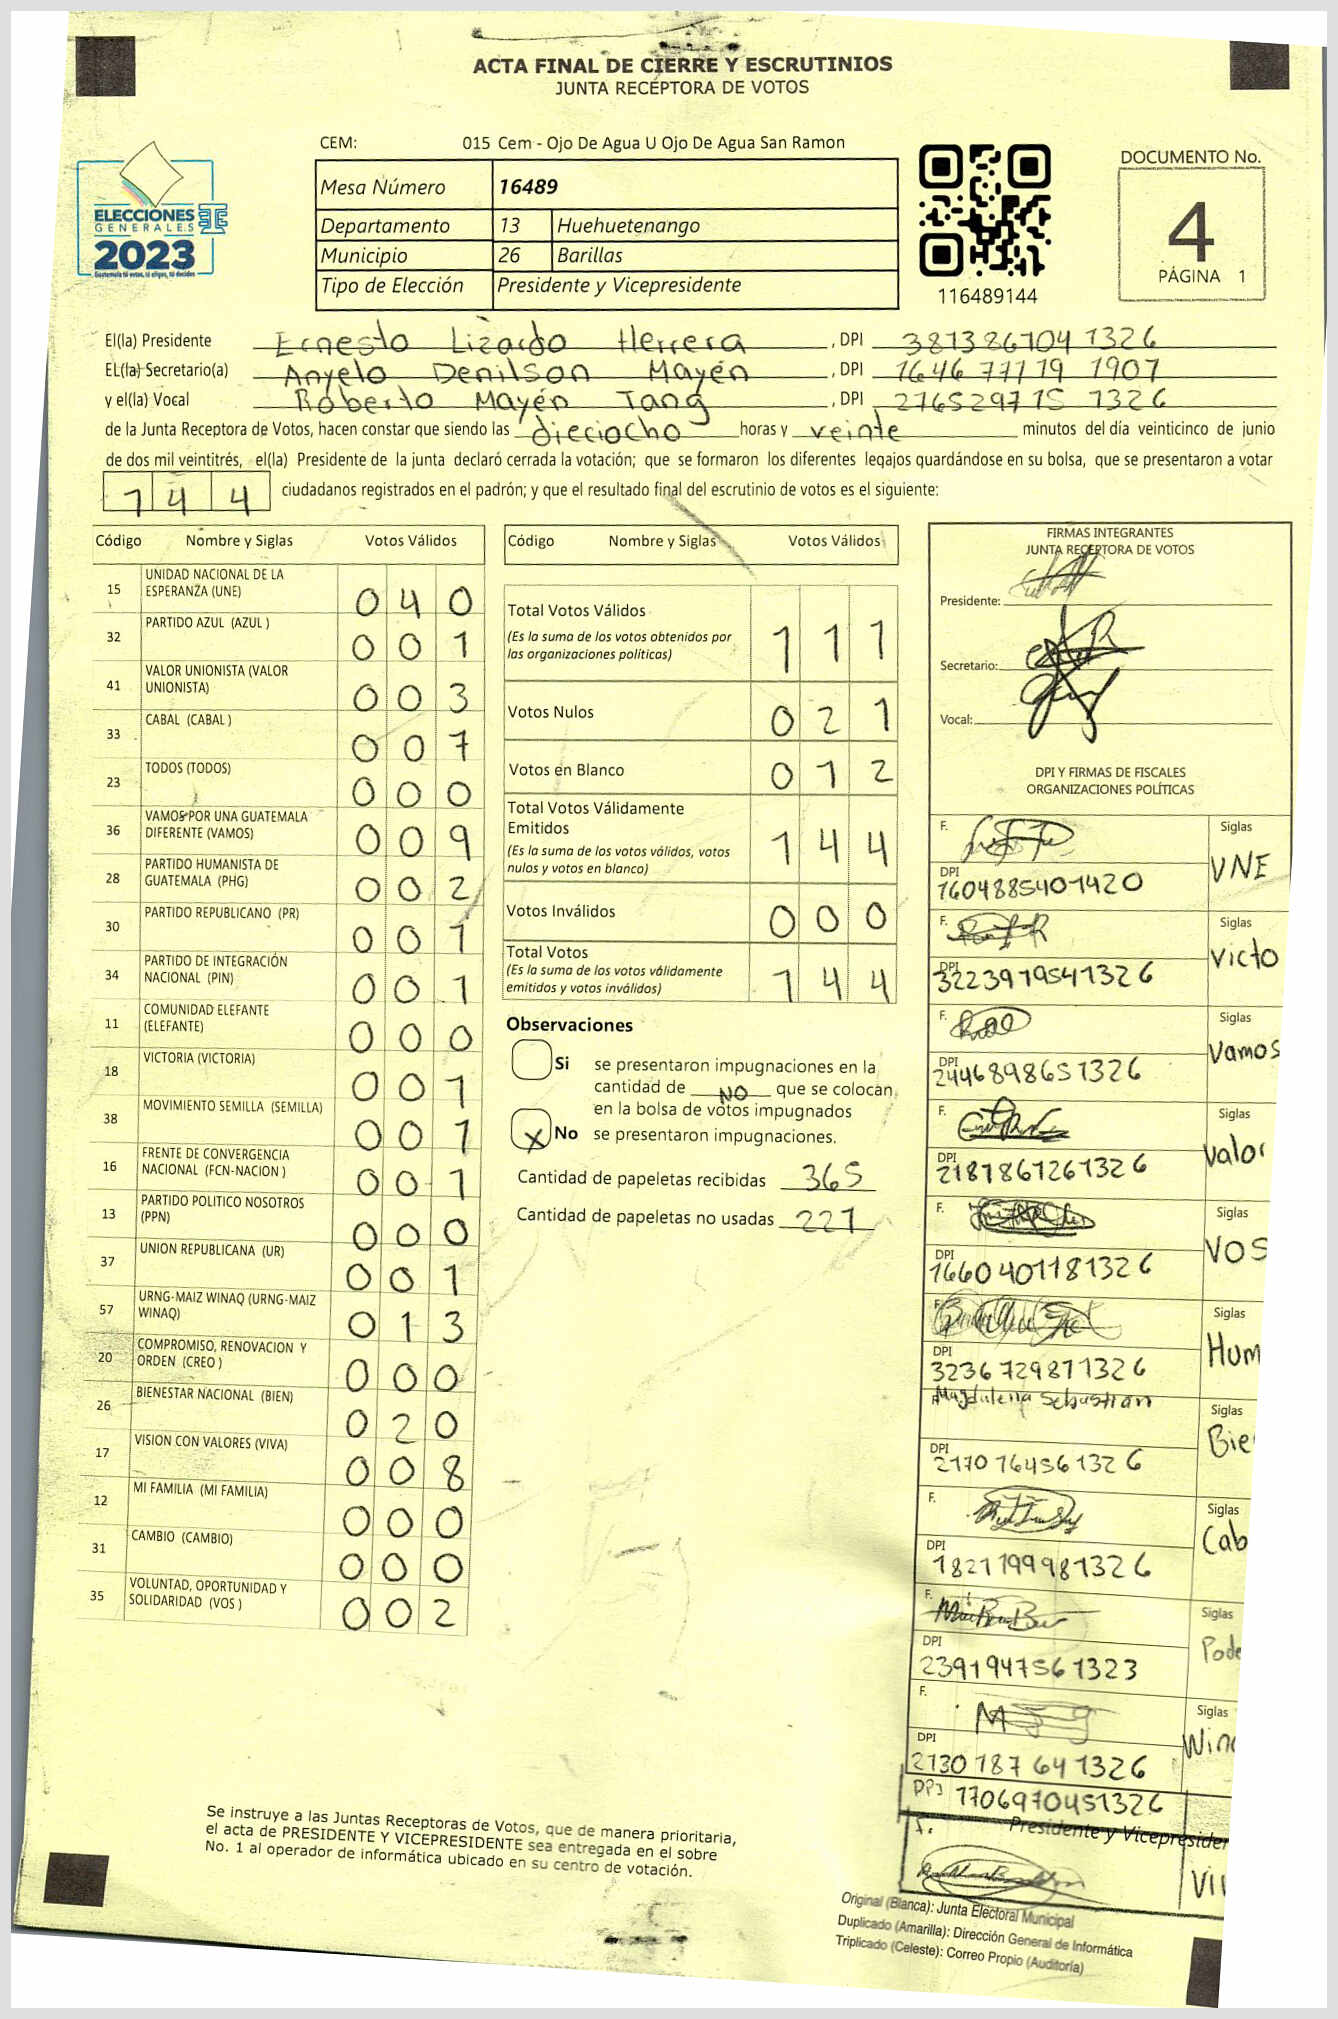 ACTA FINAL DE CIERRE Y ESCRUTINIOS
JUNTA RECEPTORA DE VOTOS
CEM: 015 Cem - Ojo De Agua U Ojo De Agua San Ramon
Mesa Número 16489
Departamento 13 Huehuetenango
Municipio 26 Barillas
Tipo de Elección Presidente y Vicepresidente
ELECCIONES
GENERALES
2023
Guatemala tú votas, tú eliges, tú decides
116489144
DOCUMENTO No.
4
PÁGINA 1
El(la) Presidente Ernesto Lizardo Herrera, DPI 381386104 1326
EL(la) Secretario(a) Anyelo Denilson Mayén, DPI 1646 77119 1907
y el(la) Vocal Roberto Mayén Tang, DPI 276529715 1326
de la Junta Receptora de Votos, hacen constar que siendo las dieciocho horas y veinte minutos del día veinticinco de junio
de dos mil veintitrés, el(la) Presidente de la junta declaró cerrada la votación; que se formaron los diferentes legajos guardándose en su bolsa, que se presentaron a votar
144 ciudadanos registrados en el padrón; y que el resultado final del escrutinio de votos es el siguiente:
Código Nombre y Siglas Votos Válidos
15 UNIDAD NACIONAL DE LA ESPERANZA (UNE) 040
32 PARTIDO AZUL (AZUL ) 001
41 VALOR UNIONISTA (VALOR UNIONISTA) 003
33 CABAL (CABAL ) 007
23 TODOS (TODOS) 000
36 VAMOS POR UNA GUATEMALA DIFERENTE (VAMOS) 009
28 PARTIDO HUMANISTA DE GUATEMALA (PHG) 002
30 PARTIDO REPUBLICANO (PR) 001
34 PARTIDO DE INTEGRACIÓN NACIONAL (PIN) 001
11 COMUNIDAD ELEFANTE (ELEFANTE) 000
18 VICTORIA (VICTORIA) 001
38 MOVIMIENTO SEMILLA (SEMILLA) 001
16 FRENTE DE CONVERGENCIA NACIONAL (FCN-NACION ) 001
13 PARTIDO POLITICO NOSOTROS (PPN) 000
37 UNION REPUBLICANA (UR) 001
57 URNG-MAIZ WINAQ (URNG-MAIZ WINAQ) 013
20 COMPROMISO, RENOVACION Y ORDEN (CREO ) 000
26 BIENESTAR NACIONAL (BIEN) 020
17 VISION CON VALORES (VIVA) 008
12 MI FAMILIA (MI FAMILIA) 000
31 CAMBIO (CAMBIO) 000
35 VOLUNTAD, OPORTUNIDAD Y SOLIDARIDAD (VOS ) 002
Código Nombre y Siglas Votos Válidos
Total Votos Válidos 111
(Es la suma de los votos obtenidos por
las organizaciones políticas)
Votos Nulos 021
Votos en Blanco 012
Total Votos Válidamente
Emitidos 144
(Es la suma de los votos válidos, votos
nulos y votos en blanco)
Votos Inválidos 000
Total Votos 144
(Es la suma de los votos válidamente
emitidos y votos inválidos)
Observaciones
Si se presentaron impugnaciones en la
cantidad de NO que se colocan
en la bolsa de votos impugnados
X No se presentaron impugnaciones.
Cantidad de papeletas recibidas 365
Cantidad de papeletas no usadas 221
FIRMAS INTEGRANTES
JUNTA RECEPTORA DE VOTOS
Presidente:
Secretario:
Vocal:
DPI Y FIRMAS DE FISCALES
ORGANIZACIONES POLÍTICAS
F. Siglas UNE
DPI 1604885401420
F. Siglas Victo
DPI 3223919541326
F. Siglas Vamos
DPI 2446898651326
F. Siglas Valor
DPI 2181861261326
F. Siglas VOS
DPI 1660401181326
F. Siglas Hum
DPI 3236729871326
Magdalena Sebastian Siglas Bie
DPI 2170164561326
F. Siglas Cab
DPI 1821199981326
F. Siglas Pode
DPI 2391947561323
F. Siglas Wina
DPI 2130 187 641326
DPI 1706970451326
Presidente y Vicepresiden
F. Vi
Se instruye a las Juntas Receptoras de Votos, que de manera prioritaria,
el acta de PRESIDENTE Y VICEPRESIDENTE sea entregada en el sobre
No. 1 al operador de informática ubicado en su centro de votación.
Original (Blanca): Junta Electoral Municipal
Duplicado (Amarilla): Dirección General de Informática
Triplicado (Celeste): Correo Propio (Auditoría)